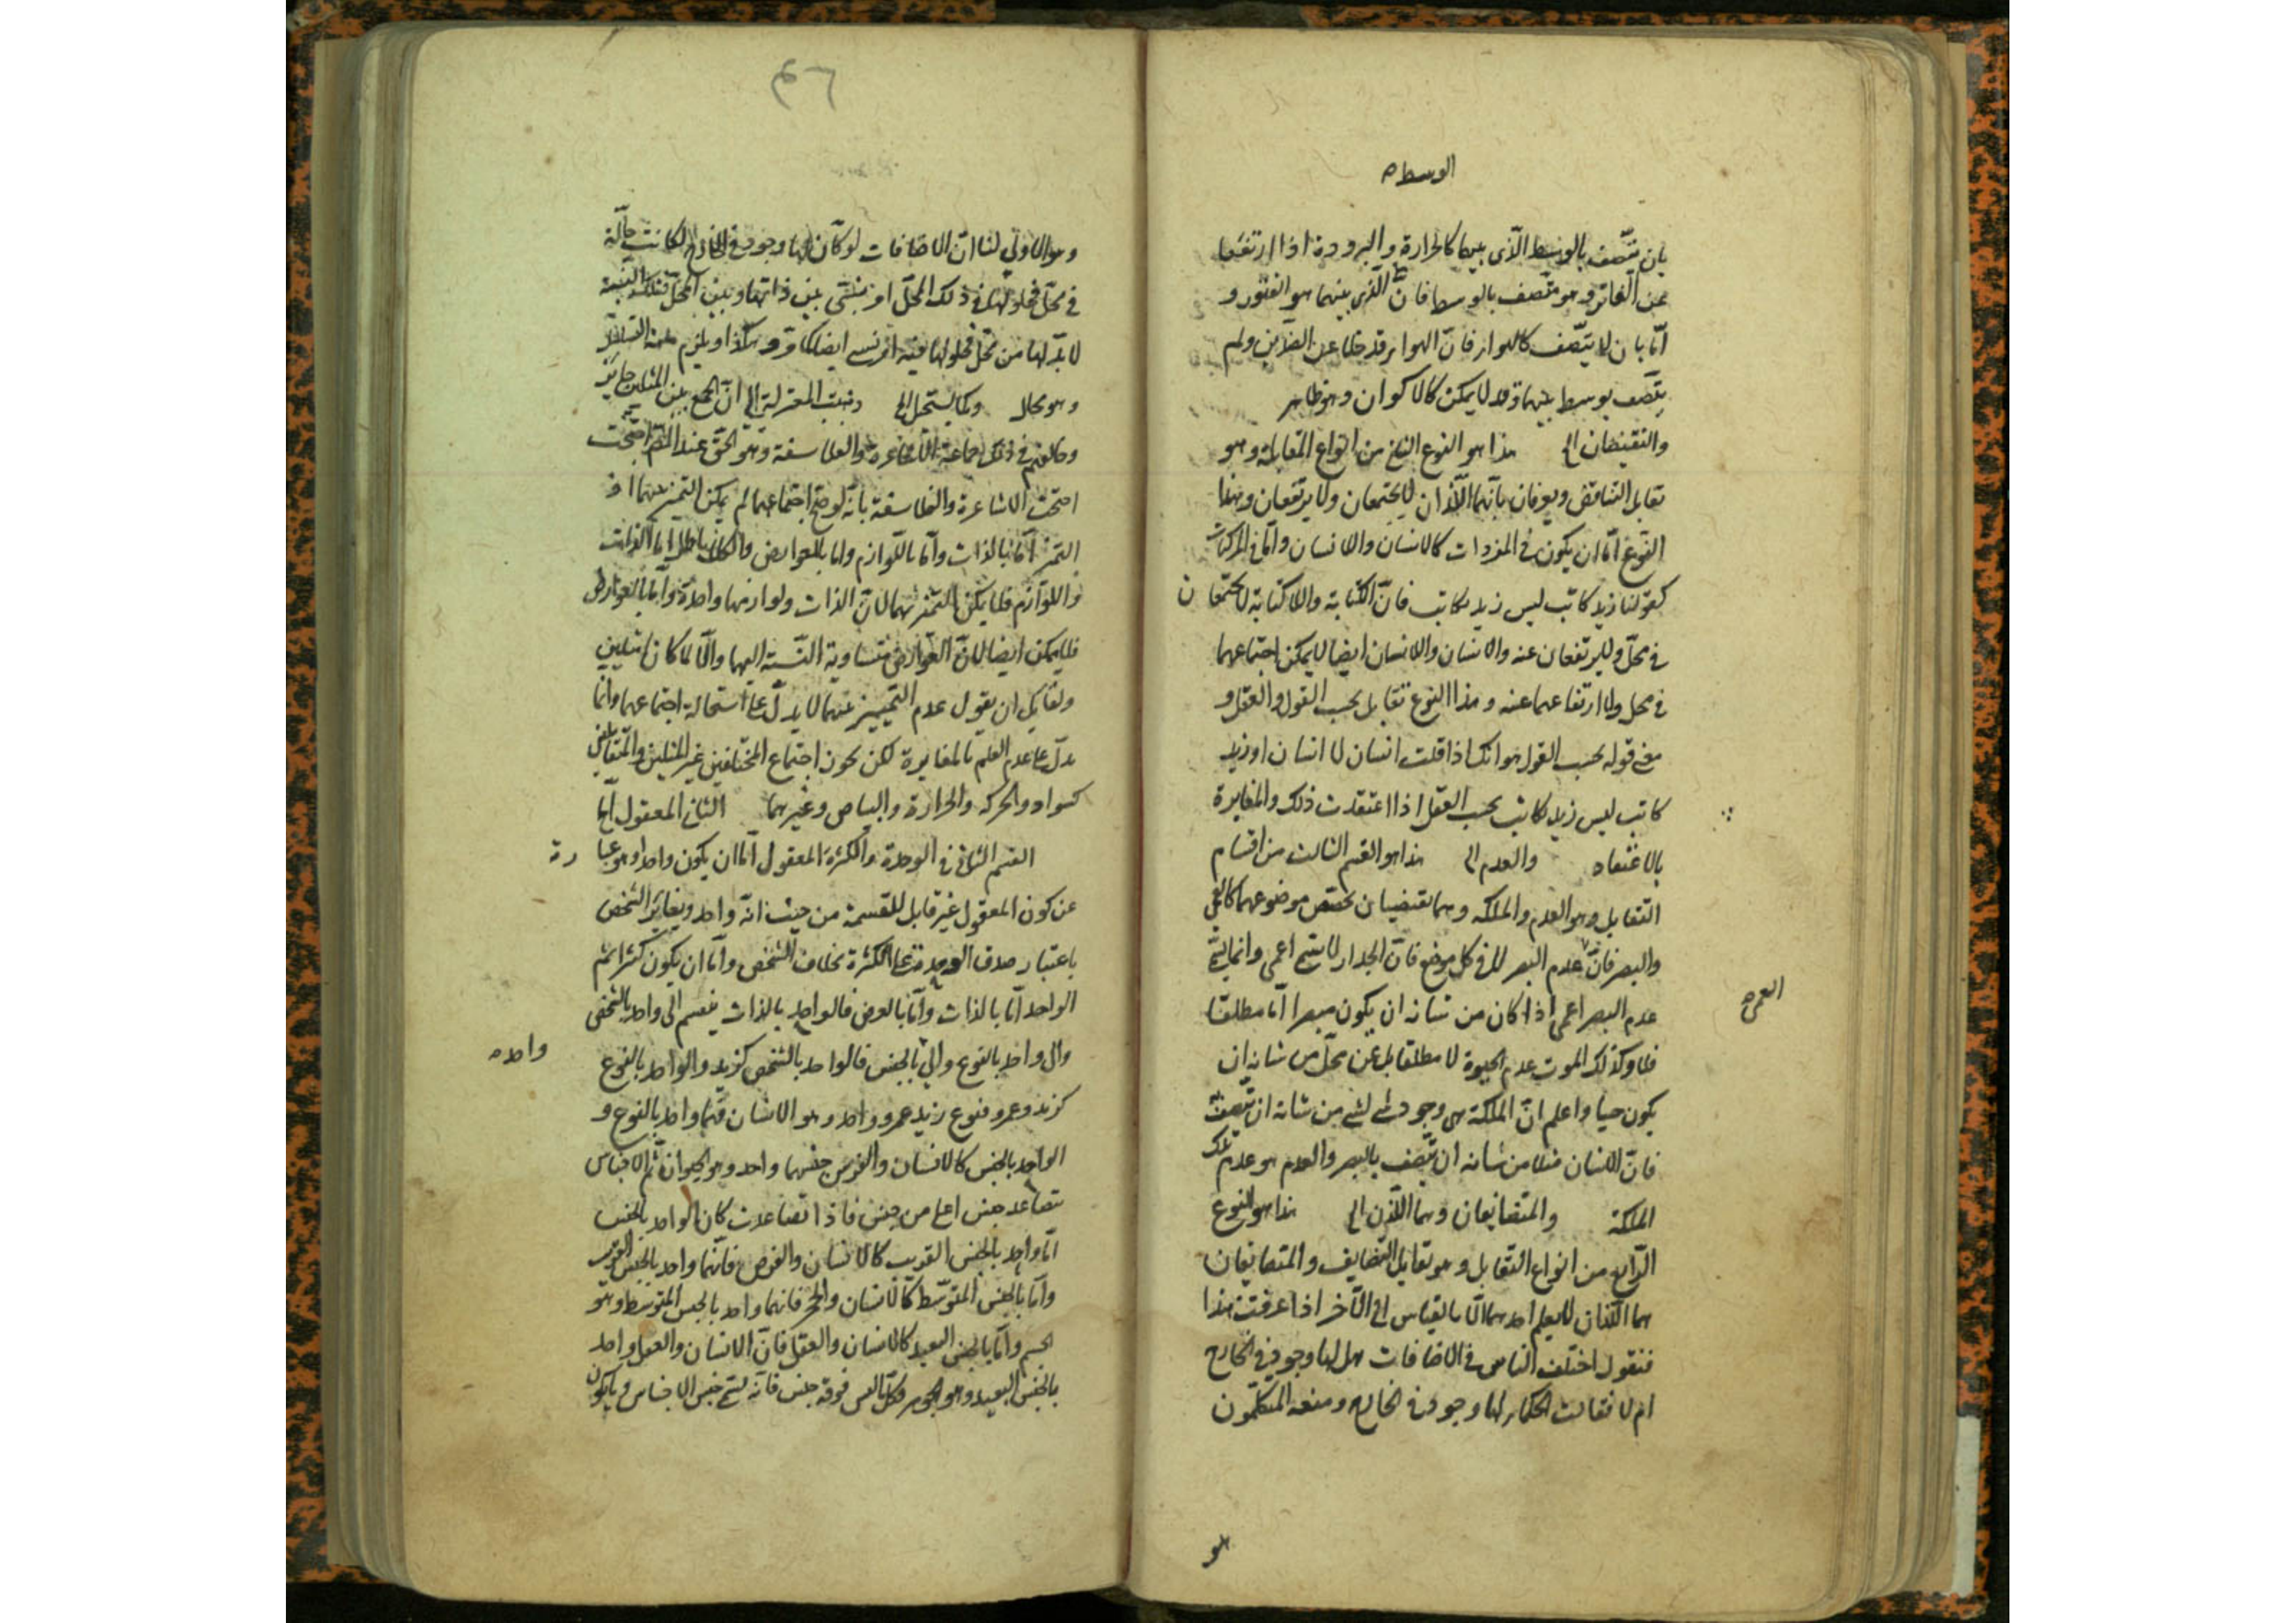 الوسط
بان يتصف بالوسط الذى بينهما كالحرارة والبرودة اذا ارتفعا
عن الفاتر وهو متصف بالوسط فان الذى بينهما هو الفتور و
امّا بان لا يتصف كالهواء فان الهواء قد خلا عن الضدين ولم
يتصف بوسط بينهما وقد لا يمكن كالاكوان وهو ظاهر
والنقيضان الى هذا هو النوع الثانى من انواع المقابلة وهو
تقابل التناقض ويعرفان بانهما اللذان لا يجتمعان ولا يرتفعان وهذا
النوع امّا ان يكون فى المفردات كالانسان واللاانسان وامّا فى المركبات
كقولنا زيد كاتب ليس زيد بكاتب فانّ الكتابة واللاكتابة لا يجتمعان
فى محلّ ولا يرتفعان عنه والانسان واللاانسان ايضا لا يمكن اجتماعهما
فى محل ولا ارتفاعهما عنه وهذا النوع تقابل بحسب القول والعقل و
معنى قوله بحسب القول هو انك اذا قلت انسان لا انسان او زيد
كاتب ليس زيد بكاتب بحسب العقل اذا اعتقدت ذلك والمغايرة
بالاعتقاد والعدم الى هذا هو القسم الثالث من اقسام
التقابل وهو العدم والملكه وهما نقيضان تخصص موضوعهما كالعمى
والبصر فانّ عدم البصر لا فى كل موضع فانّ الجدار لا يسمى اعمى وانما يسمى
العمى
عدم البصر اعمى اذا كان من شانه ان يكون مبصرا امّا مطلقا
فلا وكذلك الموت عدم الحيوة لا مطلقا بل عن محلّ من شانه ان
يكون حيا واعلم انّ الملكة هى وجود شئ لشئ من شانه ان يتصف
فانّ الانسان مثلا من شانه ان يتصف بالبصر والعدم هو عدم تلك
الملكة والمتضايفان وهما اللذان الى هذا هو النوع
الرّابع من انواع التقابل وهو تقابل التضايف والمتضايفان
هما اللذان لا يعلم احدهما الّا بالقياس الى الآخر اذا عرفت هذا
فنقول اختلف الناس فى الاضافات هل لها وجود فى الخارج
ام لا فقالت الحكماء لها وجود فى الخارج ومنعه المتكلمون
هو
وهو الاولى لنا انّ الاضافات لو كان لها وجود فى الخارج لكانت حالّة
فى محلّ فحلولها فى ذلك المحلّ امر نسبى بين ذاتها وبين المحلّ فتلك النسبة
لا بدّ لها من محلّ فحلولها فيه امر نسبى ايضا وهكذا ويلزم منه التسلسل
وهو محال وكما يستحيل الى ذهبت المعتزلة الى انّ الجمع بين المثلين جايز
وخالفهم فى ذلك جماعة الاشاعرة والفلاسفة وهو الحق عند المصّ
احتجت الاشاعرة والفلاسفة بانّه لو صح اجتماعهما لم يكن التميز بينهما اذ
التميز امّا بالذات وامّا باللوازم واما بالعوارض والكل باطل امّا الذات
واللوازم فلا يمكن التميز بهما لانّ الذات ولوازمها واحدة وامّا بالعوارض
فلا يمكن ايضا لانّ العوارض متساوية النسبة اليهما والّا لما كانا مثلين
ولقايل ان يقول عدم التمييز بينهما لا يدل على استحالة اجتماعهما وانما
يدلّ على عدم العلم بالمغايرة لكن يجوز اجتماع المختلفين غير المثلين والمتقابلين
كسواد والحركة والحرارة والبياض وغيرهما الثانى المعقول امّا
القسم الثانى فى الوحدة والكثرة المعقول امّا ان يكون واحدا وهو عبارة
عن كون المعقول غير قابل للقسمة من حيث انّه واحد ويغاير التشخص
باعتبار صدق الوحدة على الكثرة بخلاف التشخص وامّا ان يكون كثيرا ثم
الواحد امّا بالذات وامّا بالعرض فالواحد بالذات ينقسم الى واحد بالشخص
والى واحد بالنوع والى بالجنس فالواحد بالشخص كزيد والواحد بالنوع
واحد
كزيد وعمرو فنوع زيد وعمرو واحد وهو الانسان فهما واحد بالنوع و
الواحد بالجنس كالانسان والفرس جنسهما واحد وهو الحيوان ثم الاجناس
تتصاعد جنس اعلى من جنس فاذا تصاعدت كان الواحد بالجنس
امّا واحد بالجنس القريب كالانسان والفرس فانّهما واحد بالجنس القريب
وامّا بالجنس المتوسّط كالانسان والحجر فانهما واحد بالجنس المتوسط وهو
الجسم وامّا بالجنس البعيد كالانسان والعقل فانّ الانسان والعقل واحد
بالجنس البعيد وهو الجوهر فوقه جنس فانّه يسمى جنس الاجناس